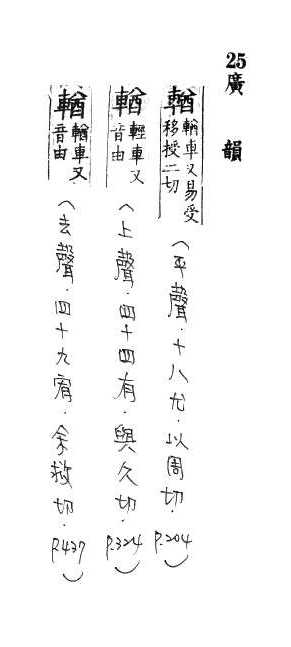 25廣韻
輶 輶車又易受移授二切（平聲．十八尤．以周切．P.204）
輶 輕車又音由（上聲．四十四有．與久切．P.324）
輶 輶車又音由（去聲．四十九宥．余救切．P.437）